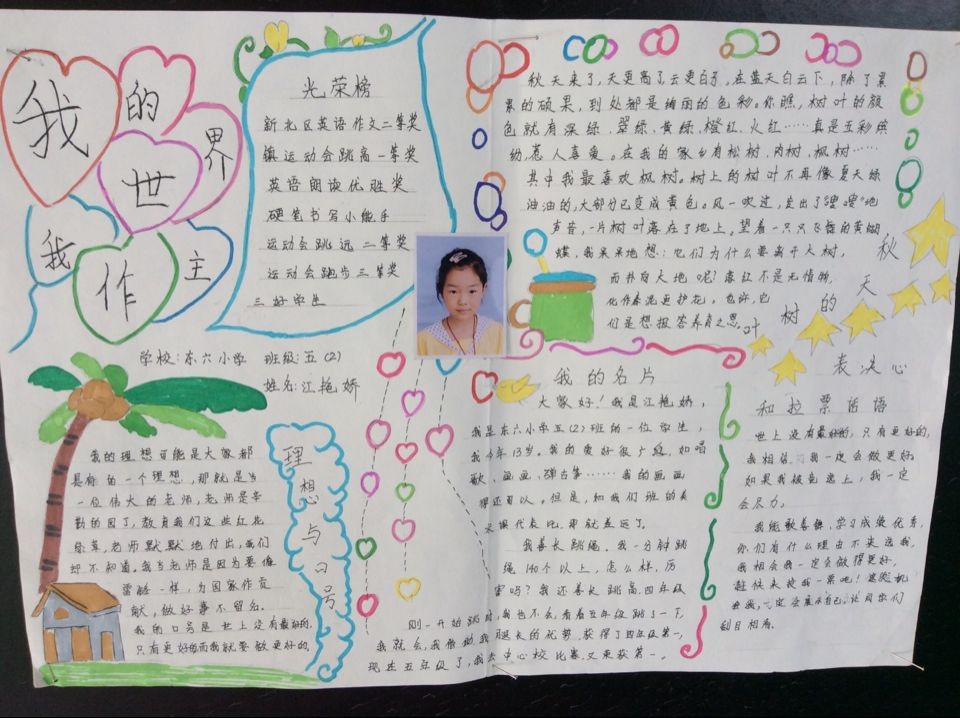 我的世界
我作主
光荣榜
新北区英语作文二等奖
镇运动会跳高一等奖
英语朗读优胜奖
硬笔书写小能手
运动会跳远二等奖
运动会跑步三等奖
三好学生
学校:东六小学 班级:五(2)
姓名:江艳娇
秋天来了,天更高了云更白了,在蓝天白云下,除了累
累的硕果,到处都是绚丽的色彩。你瞧,树叶的颜
色就有深绿、翠绿、黄绿、橙红、火红……真是五彩缤
纷,惹人喜爱。在我的家乡有松树、肉树、枫树……
其中我最喜欢枫树。树上的树叶不再像夏天绿
油油的,大部分已变成黄色。风一吹过,发出了“哩哩”地
声音,一片树叶落在了地上。望着一只只飞舞的黄蝴
蝶,我呆呆地想:它们为什么要离开大树,
而扑向大地呢?落红不是无情物,
化作春泥更护花,也许,它
们是想报答养育之恩。
秋天的树叶
理想与口号
我的理想可能是大家都
具有的一个理想,那就是当
一位伟大的老师,老师是辛
勤的园丁,教育我们这些红花
绿草,老师默默地付出,我们
却不知道。我当老师是因为要像
雷锋一样,为国家作贡
献,做好事不留名。
我的口号是世上没有最好的,
只有更好的而我就要做更好的。
我的名片
大家好!我是江艳娇,
我是东六小学五(2)班的一位学生,
我今年13岁。我的爱好很广泛,如唱
歌、画画、弹古筝……我的画画
得还可以。但是,和我们班的美
代表比,那就差远了。
我善长跳绳。我一分钟跳
绳140个以上,怎么样,厉
害吗?我还善长跳高,四年级
刚一开始跳时,我也不会,看着五年级跳了一下,
我就会,我借助我腿长的优势,获得了四年级第一,
现在五年级了,我去中心校比赛,又来获第一。
表决心
和拉票话语
世上没有最好的,只有更好的,
我相信我一定会做更好。
如果我被竞选上,我一定
会尽力。
我能歌善舞,学习成绩优秀,
你们有什么理由不来选我,
我相会我一定会做得更好,
赶快来投我一票吧!
我,一定会展示自己,让同学们
刮目相看。